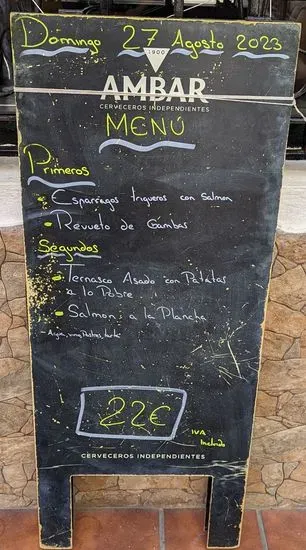 Domingo 27 Agosto 2023
1900
AMBAR
CERVECEROS INDEPENDIENTES
MENÚ
Primeros
• Esparragos trigueros con Salmon
• Revuelto de Gámbas
Segundos
• Ternasco Asado con Patatas
a lo Pobre
• Salmon a la Plancha
- Agua, vino,
22€
IVA
Incluido
CERVECEROS INDEPENDIENTES